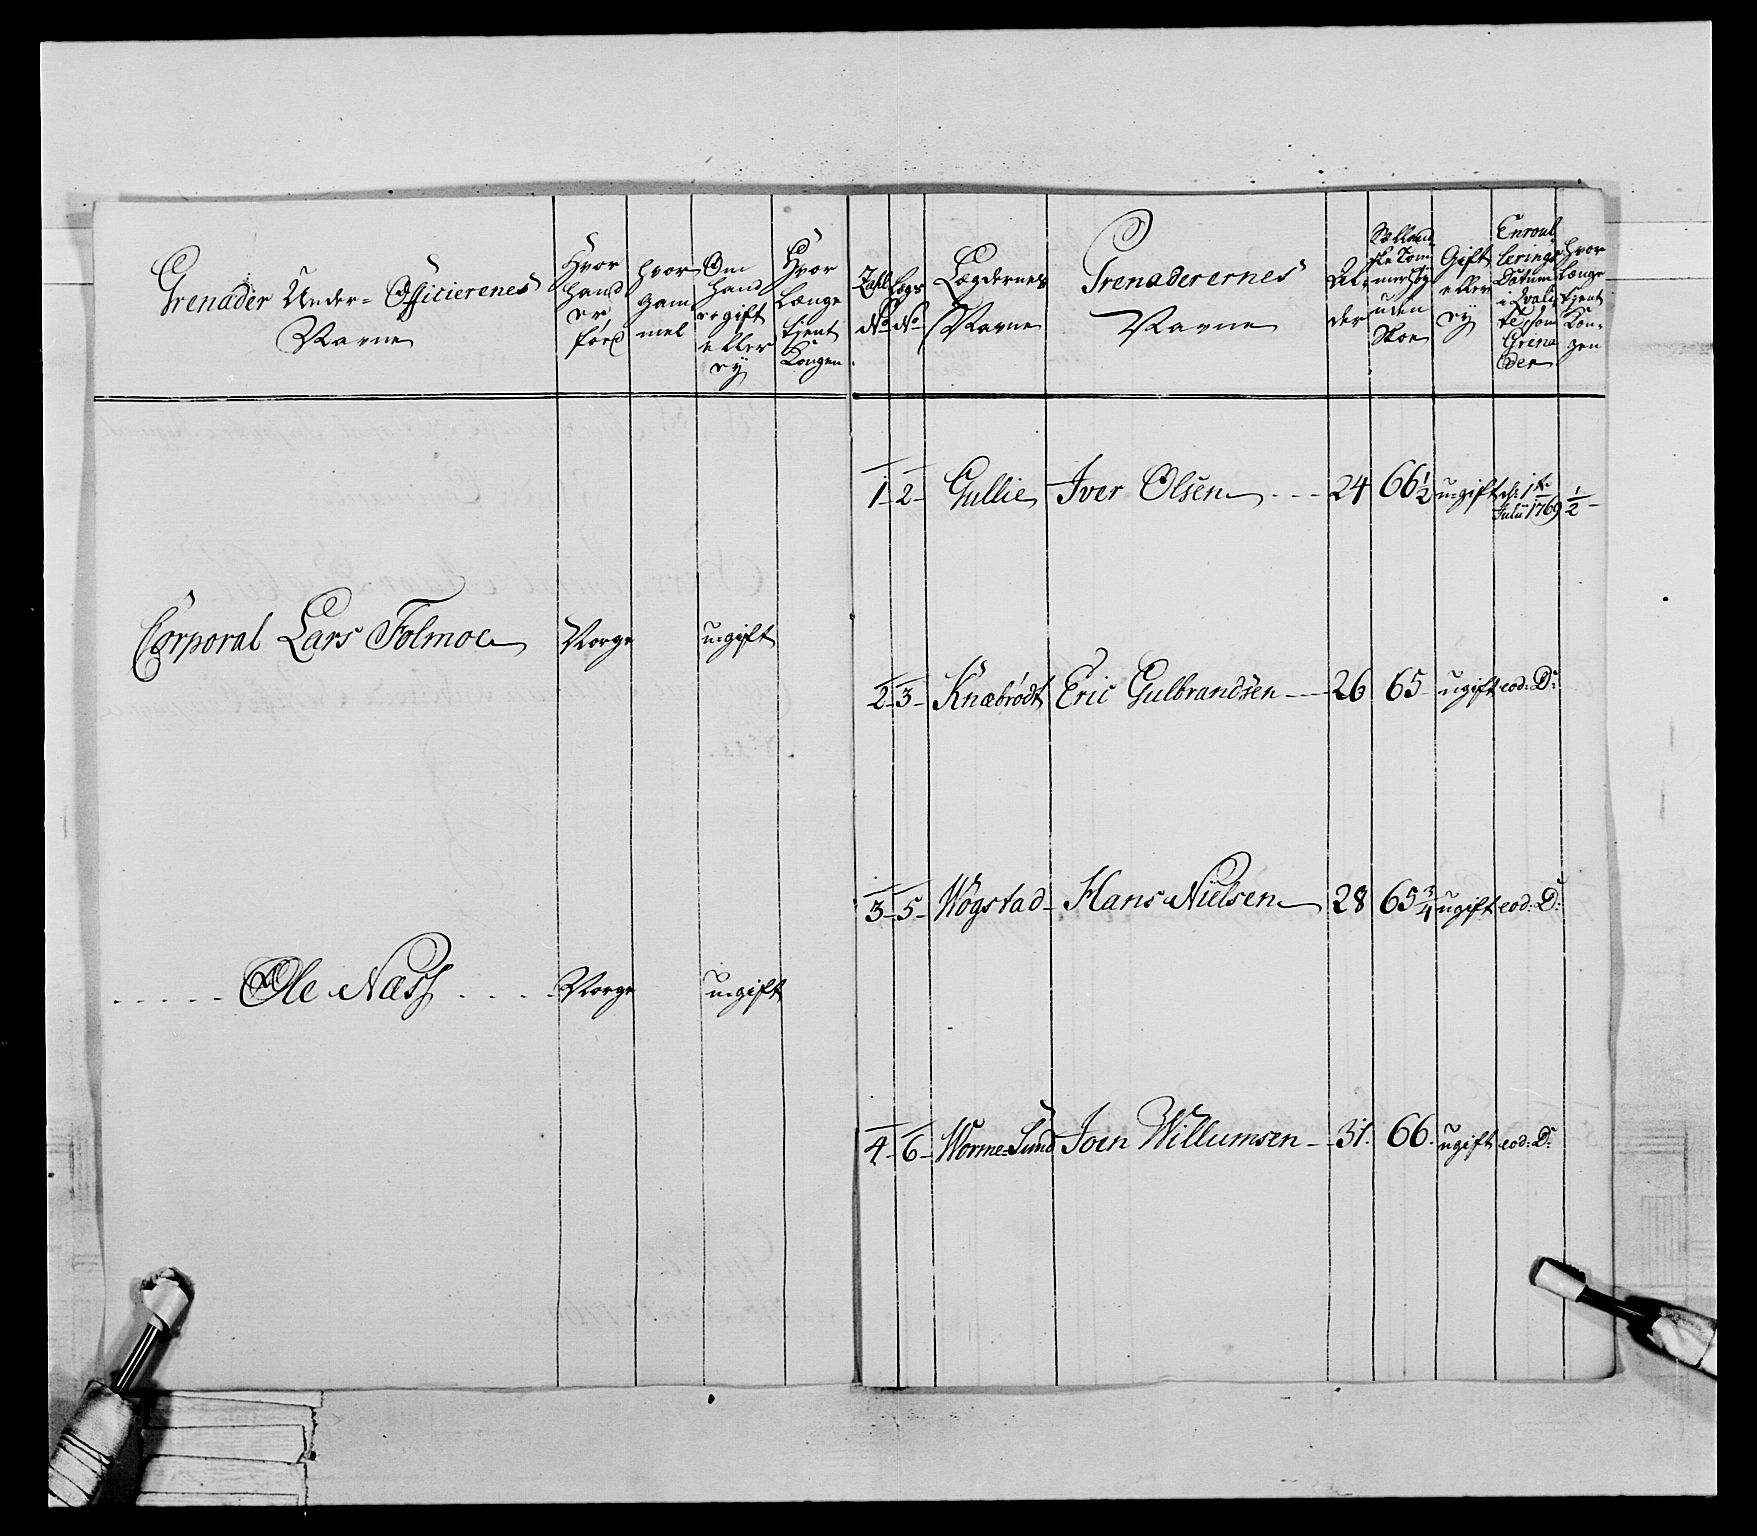 Grenader Under= Officierenes
Navne
Hvor
hand
er
fød
hvor
gam
mel
Om
hand
er gift
eller
ey
Hvor
længe
tient
Kongen
Tahl
No
Legs
No
Lægdernes
Navne
Grenaderernes
Navne
Al=
der
Sælland
ske Tom
mer høy
uden
Skoe
Gift
eller
ey
Enroul
lerings
Datum
i Qvali
te, som
Grena
der
hvor
længe
tient
Kon=
gen
1 2 Gullie Iver Olsen 24 66 1/2 u=gift d: 1te
Julii 1769 1/2
Corporal Lars Folmoe Norge u=gift
2 3 Knæbrødt Eric Gulbrandsen 26 65 ugift eod: D:
3 5 Wogstad Hans Nielsen 28 65 3/4 ugift eod: D:
Ole Næss Norge u=gift
4 6 Worme=Sund Joen Willumsen 31. 66. ugift eod: D: